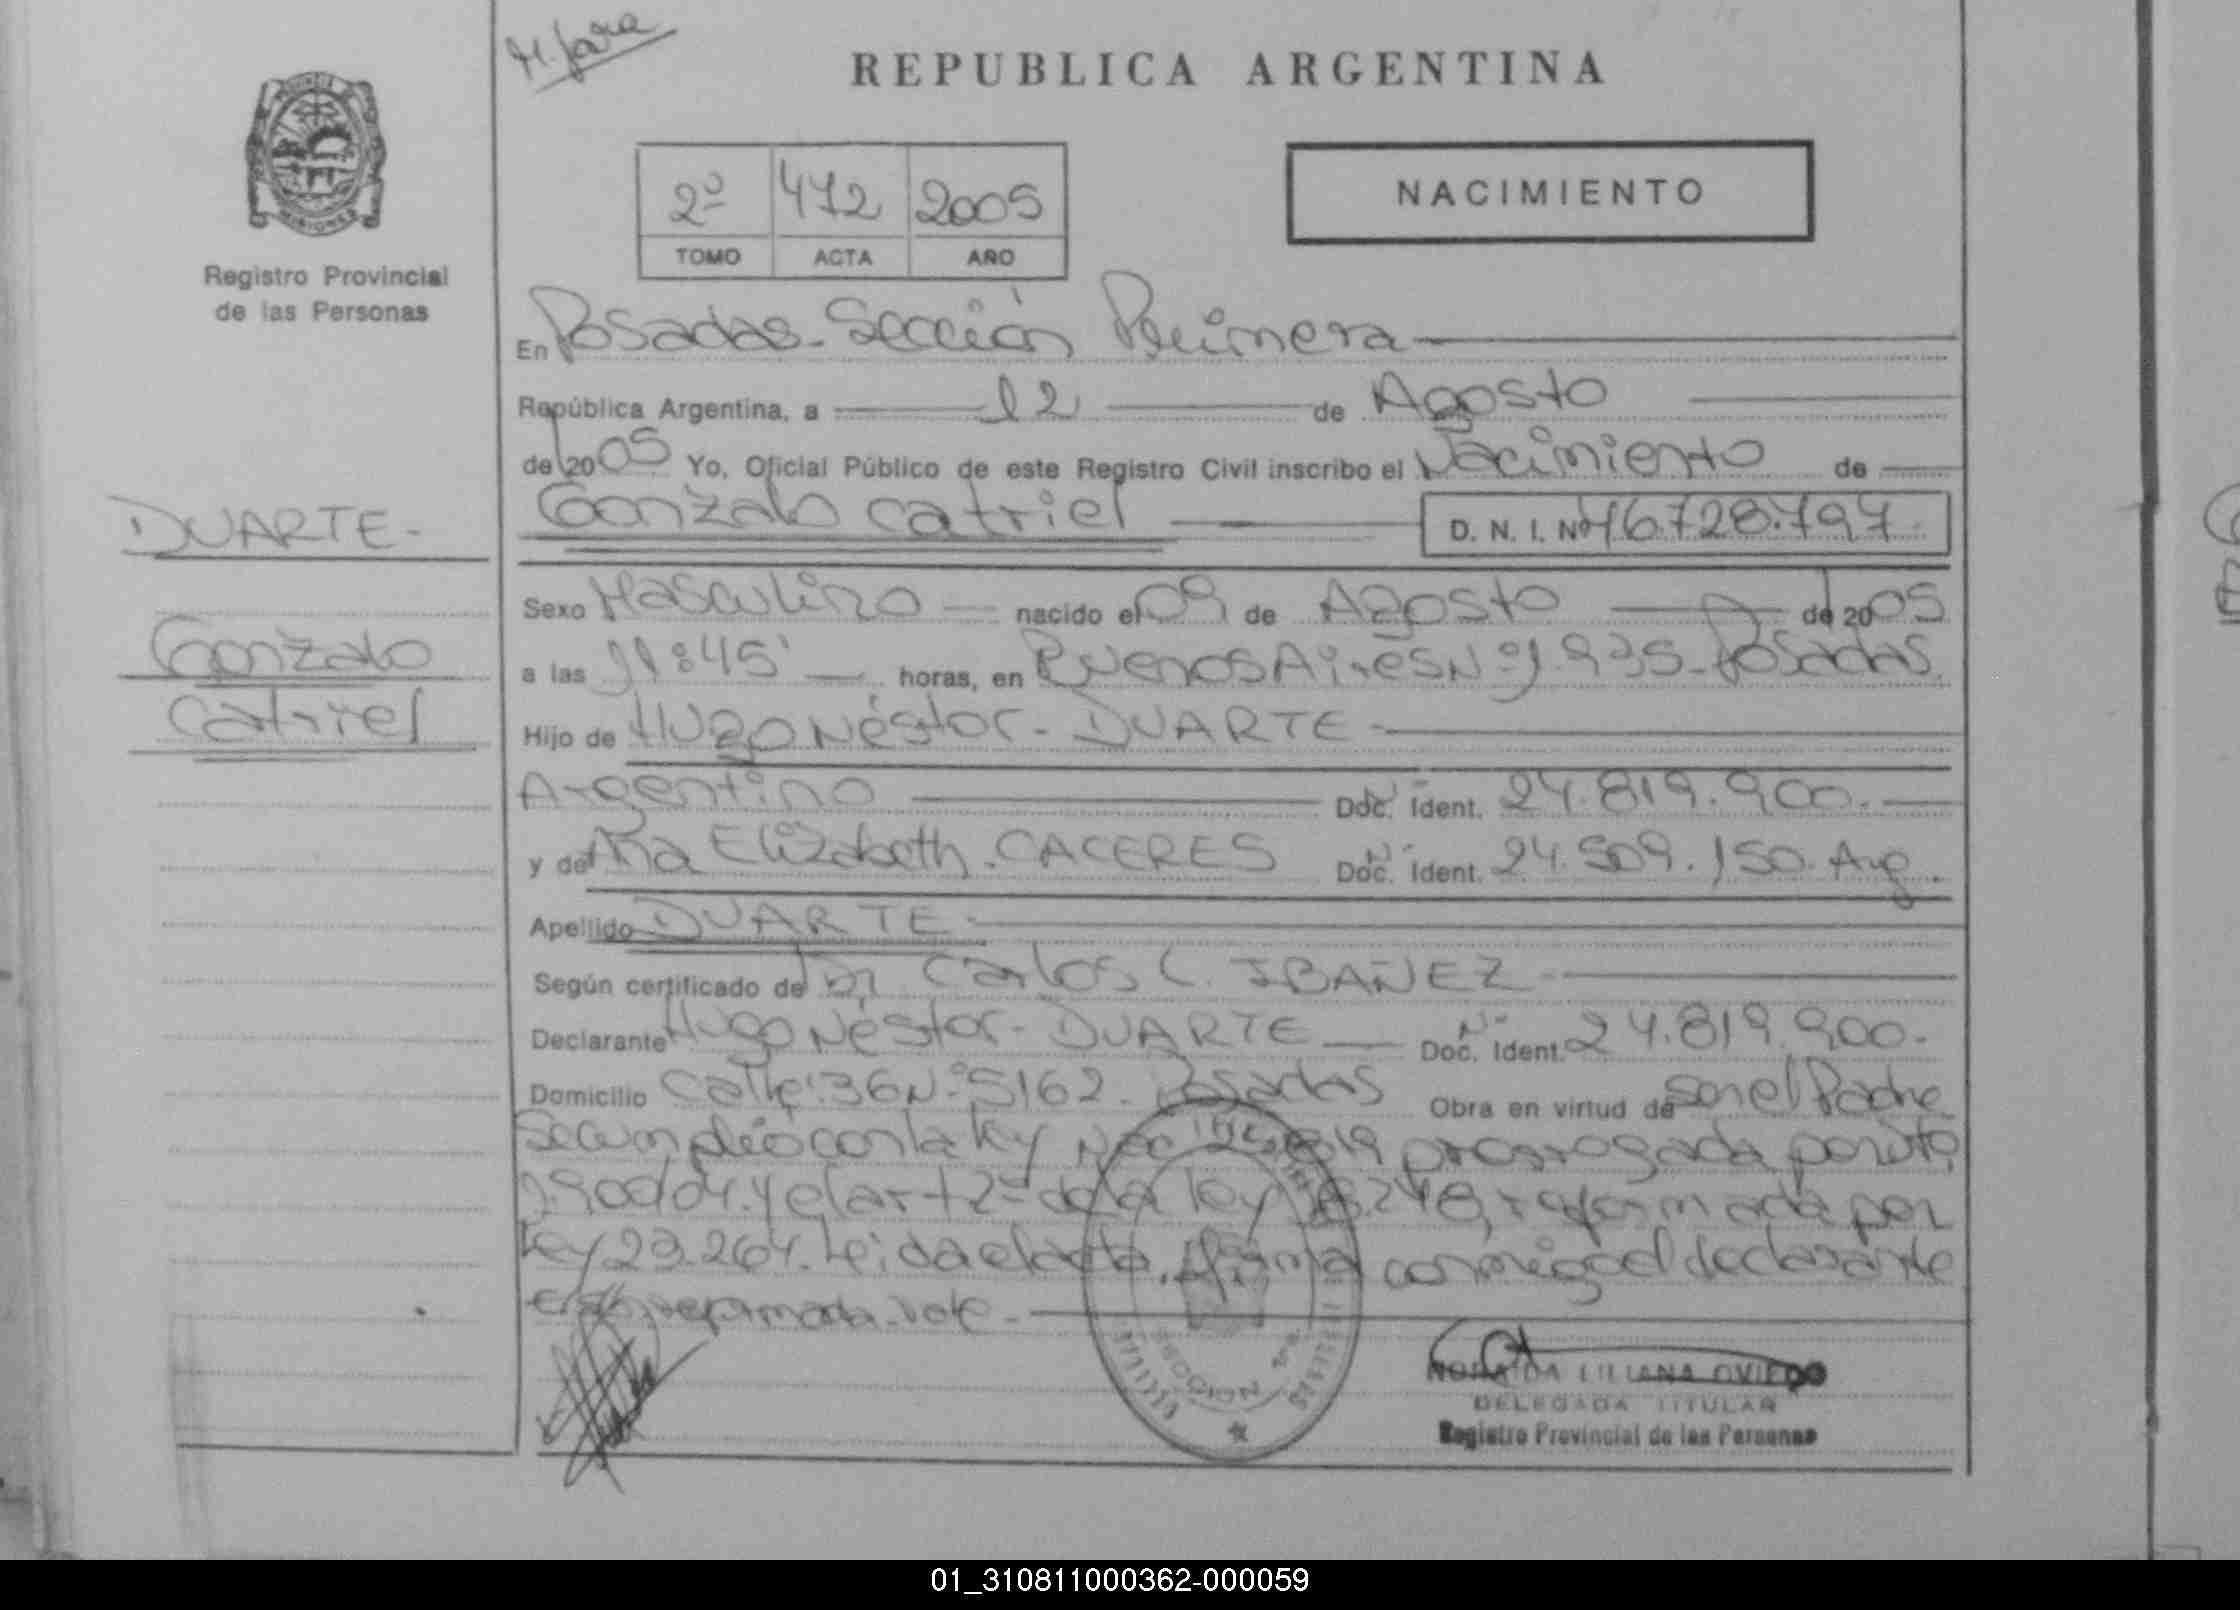 M. Jara
REPUBLICA ARGENTINA
2º 472 2005
TOMO ACTA AÑO
NACIMIENTO
MISIONES
Registro Provincial
de las Personas
En Posadas - Sección Primera
República Argentina, a 12 de Agosto
de 2005 Yo, Oficial Público de este Registro Civil inscribo el Nacimiento de
Gonzalo Catriel D. N. I. Nº 46.728.797.
DUARTE -
Gonzalo
Catriel
Sexo Masculino nacido el 09 de Agosto de 2005
a las 11:45' horas, en Buenos Aires Nº 1.935 - Posadas.
Hijo de Hugo Néstor - DUARTE -
Argentino Doc. Ident. Nº 24.819.900.
y de Ana Elizabeth. CACERES Doc. Ident. Nº 24.509.150. Arg.
Apellido DUARTE -
Según certificado de Dr. Carlos C. IBAÑEZ -
Declarante Hugo Néstor - DUARTE Doc. Ident. Nº 24.819.900.
Domicilio Calle: 36 Nº 5162. Posadas Obra en virtud de ser el Padre
Se cumplió con la ley prorrogada por dto
y el art 2º de la ley 18.248, reformada por
ley 23.264. Leida el acta, firma conmigo el declarante
vale.
SECCION 1ra.
NORAIDA LILIANA OVIEDO
DELEGADA TITULAR
Registro Provincial de las Personas
01_310811000362-000059